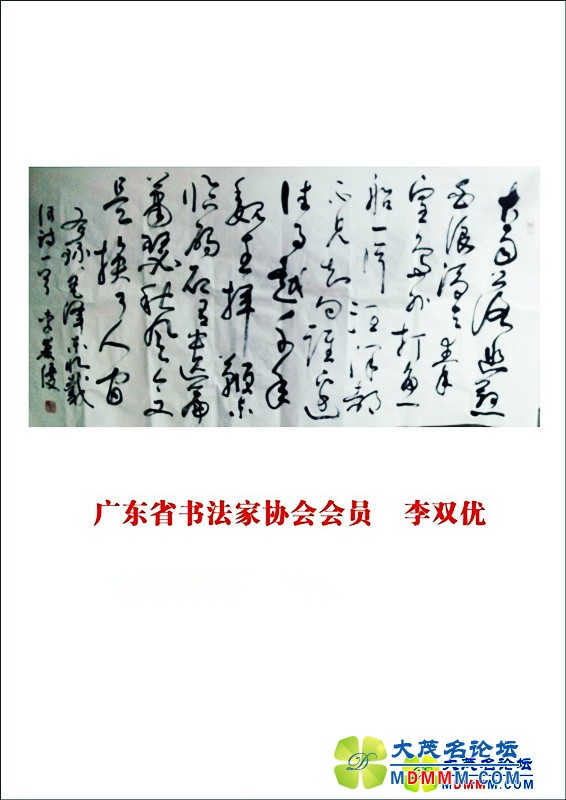 大雨落幽燕
白浪滔天秦
皇岛外打鱼
船一片汪洋都
不见知向谁边
往事越千年
魏武挥鞭东
临碣石有遗篇
萧瑟秋风今又
是换了人间
毛泽东北戴
河诗一首 李双优
广东省书法家协会会员 李双优
大茂名论坛
MDMMM.COM
大茂名论坛
MDMMM.COM